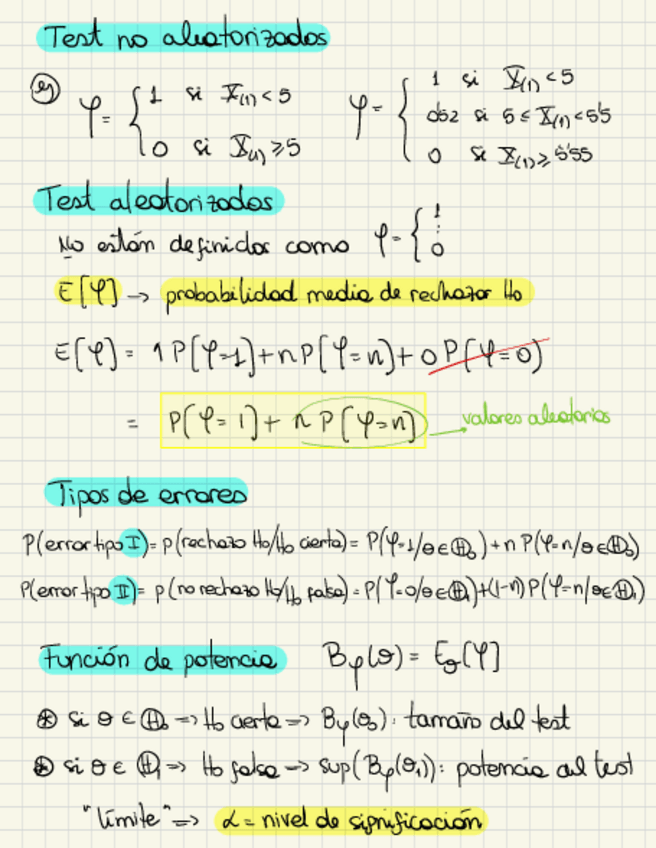 Test no aleatorizados
ej φ = { 1 si X(1) < 5 φ = { 1 si X(1) < 5
0'52 si 5 ≤ X(1) < 5'5
0 si X(1) ≥ 5 0 si X(1) ≥ 5'55
Test aleatorizados
No están definidos como φ = { 1 ⋮ 0
E[φ] → probabilidad media de rechazar H0
E[φ] = 1 P(φ=1) + n P(φ=n) + 0 P(φ=0)
= P(φ=1) + n P(φ=n) → valores aleatorios
Tipos de errores
P(error tipo I) = p(rechazo H0/H0 cierta) = P(φ=1/θ∈Θ0) + n P(φ=n/θ∈Θ0)
P(error tipo II) = p(no rechazo H0/H0 falsa) = P(φ=0/θ∈Θ1) + (1-n) P(φ=n/θ∈Θ1)
Función de potencia Bφ(θ) = Eθ[φ]
⊛ si θ ∈ Θ0 => H0 cierta => Bφ(θ0) : tamaño del test
⊛ si θ ∈ Θ1 => H0 falsa => sup(Bφ(θ1)) : potencia del test
"límite" => α = nivel de significación